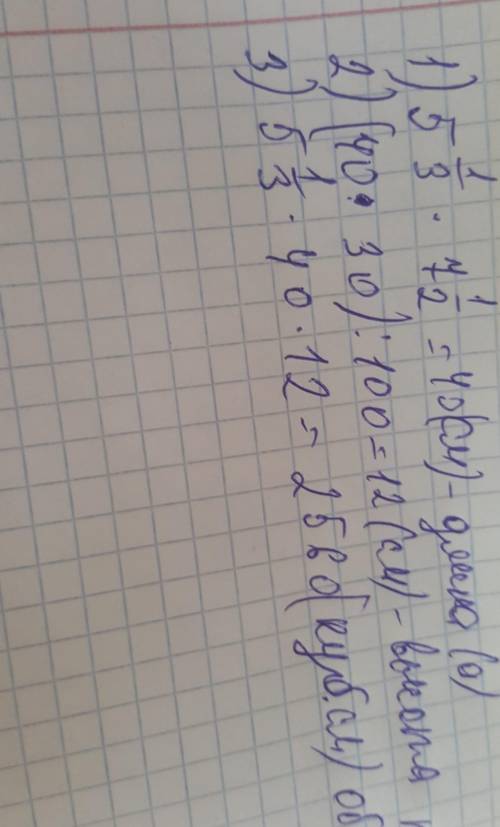 1) 5 1/3 · 7 1/2 = 40 (см) - длина (а)
2) (40 · 30) : 100 = 12 (см) - высота
3) 5 1/3 · 40 · 12 = 2560 (куб. см) об